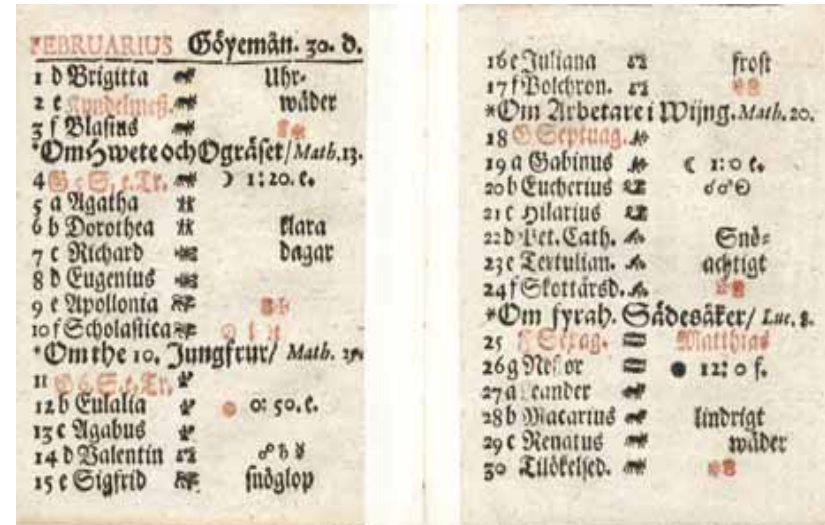 FEBRUARIUS Göyemån. 30. d.
1 d Brigitta Uhr-
2 e Kyndelmeß. wäder
3 f Blasius
*Om Hwete och Ogräset/ Math. 13.
4 G 5 S. e. Tr. ☽ 1: 20. e.
5 a Agatha
6 b Dorothea klara
7 c Richard dagar
8 d Eugenius
9 e Apollonia
10 f Scholastica
*Om the 10. Jungfrur/ Math.
11 S. e. Tr.
12 b Eulalia 0: 50. e.
13 c Agabus
14 d Valentin ☍ ♄ ☿
15 e Sigfrid snöglop
16 e Juliana frost
17 f Polchron.
*Om Arbetare i Wijng. Math. 20.
18 G Septuag.
19 a Gabinus ☾ 1: 0 e.
20 b Eucherius ☌ ♂ ☉
21 c Hilarius
22 d Pet. Cath. Snö=
23 e Tertulian. achtigt
24 f Skottårsd.
*Om fyrah. Sädesåker/ Luc. 8.
25 Sexag. Matthias
26 g Nestor ● 12: 0 f.
27 a Leander
28 b Macarius lindrigt
29 c Renatus wäder
30 Tilökelsed.